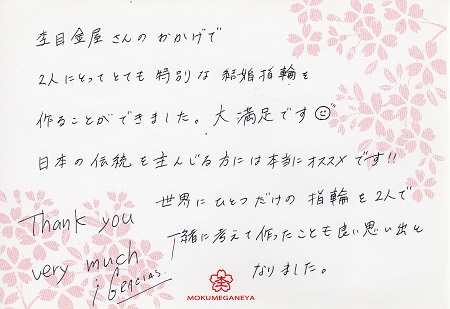 杢目金屋さんのおかげで
2人にとってとても特別な結婚指輪を
作ることができました。大満足です
日本の伝統を重んじる方には本当にオススメです!!
世界にひとつだけの指輪を2人で
一緒に考えて作ったことも良い思い出と
なりました。
Thank you
very much
¡Gracias!
杢
MOKUMEGANEYA